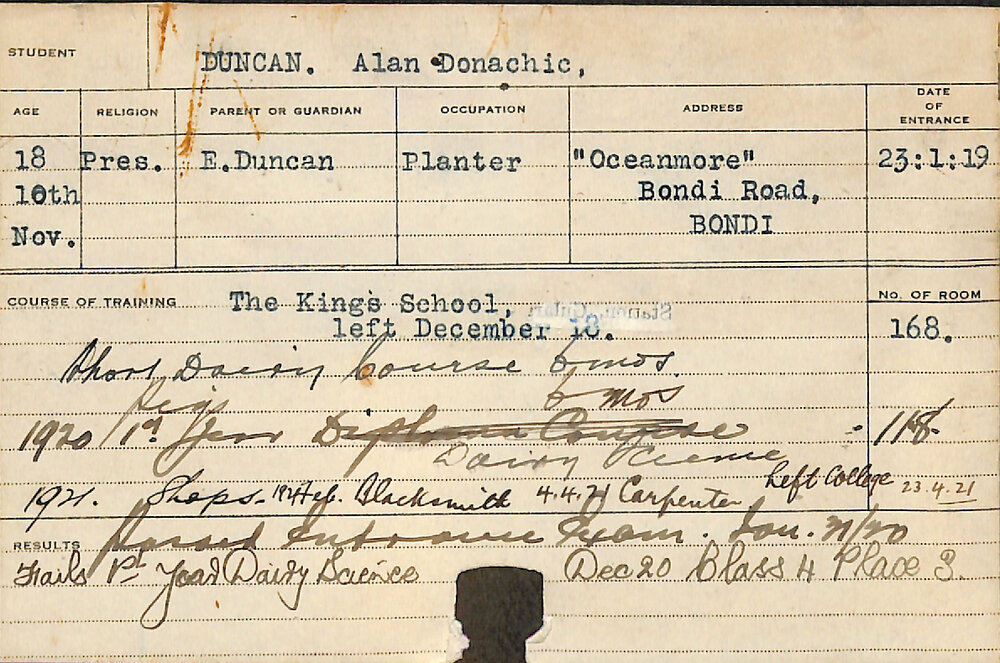 STUDENT DUNCAN. Alan Donachic,
AGE RELIGION PARENT OR GUARDIAN OCCUPATION ADDRESS DATE OF ENTRANCE
18 Pres. E.Duncan Planter "Oceanmore" 23:1:19
10th Bondi Road,
Nov. BONDI
COURSE OF TRAINING The King's School, No. OF ROOM
left December 18. 168.
Short Dairy Course 6 mos.
Pigs 6 mos
1920 1st Year Diploma Course - 118
Dairy Science
1921. Shops. Feb. Blacksmith 4.4.21 Carpenter Left College 23.4.21
RESULTS Passed Entrance Exam. Jan.
Fails 1st Year Dairy Science Dec 20 Class 4 Place 3.